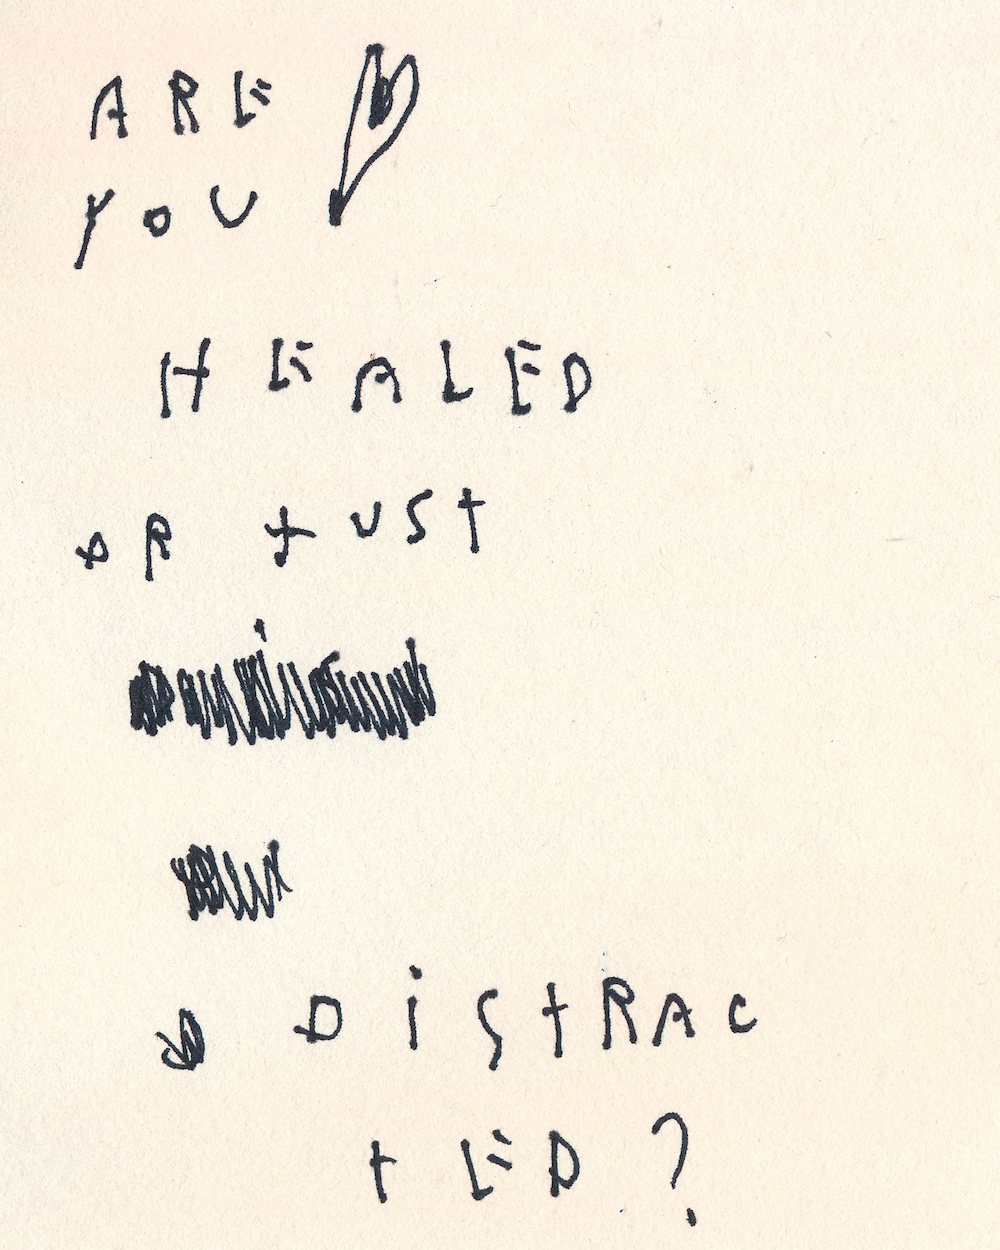 ARE
YOU
HEALED
OR JUST
DiSTRAC
TED?